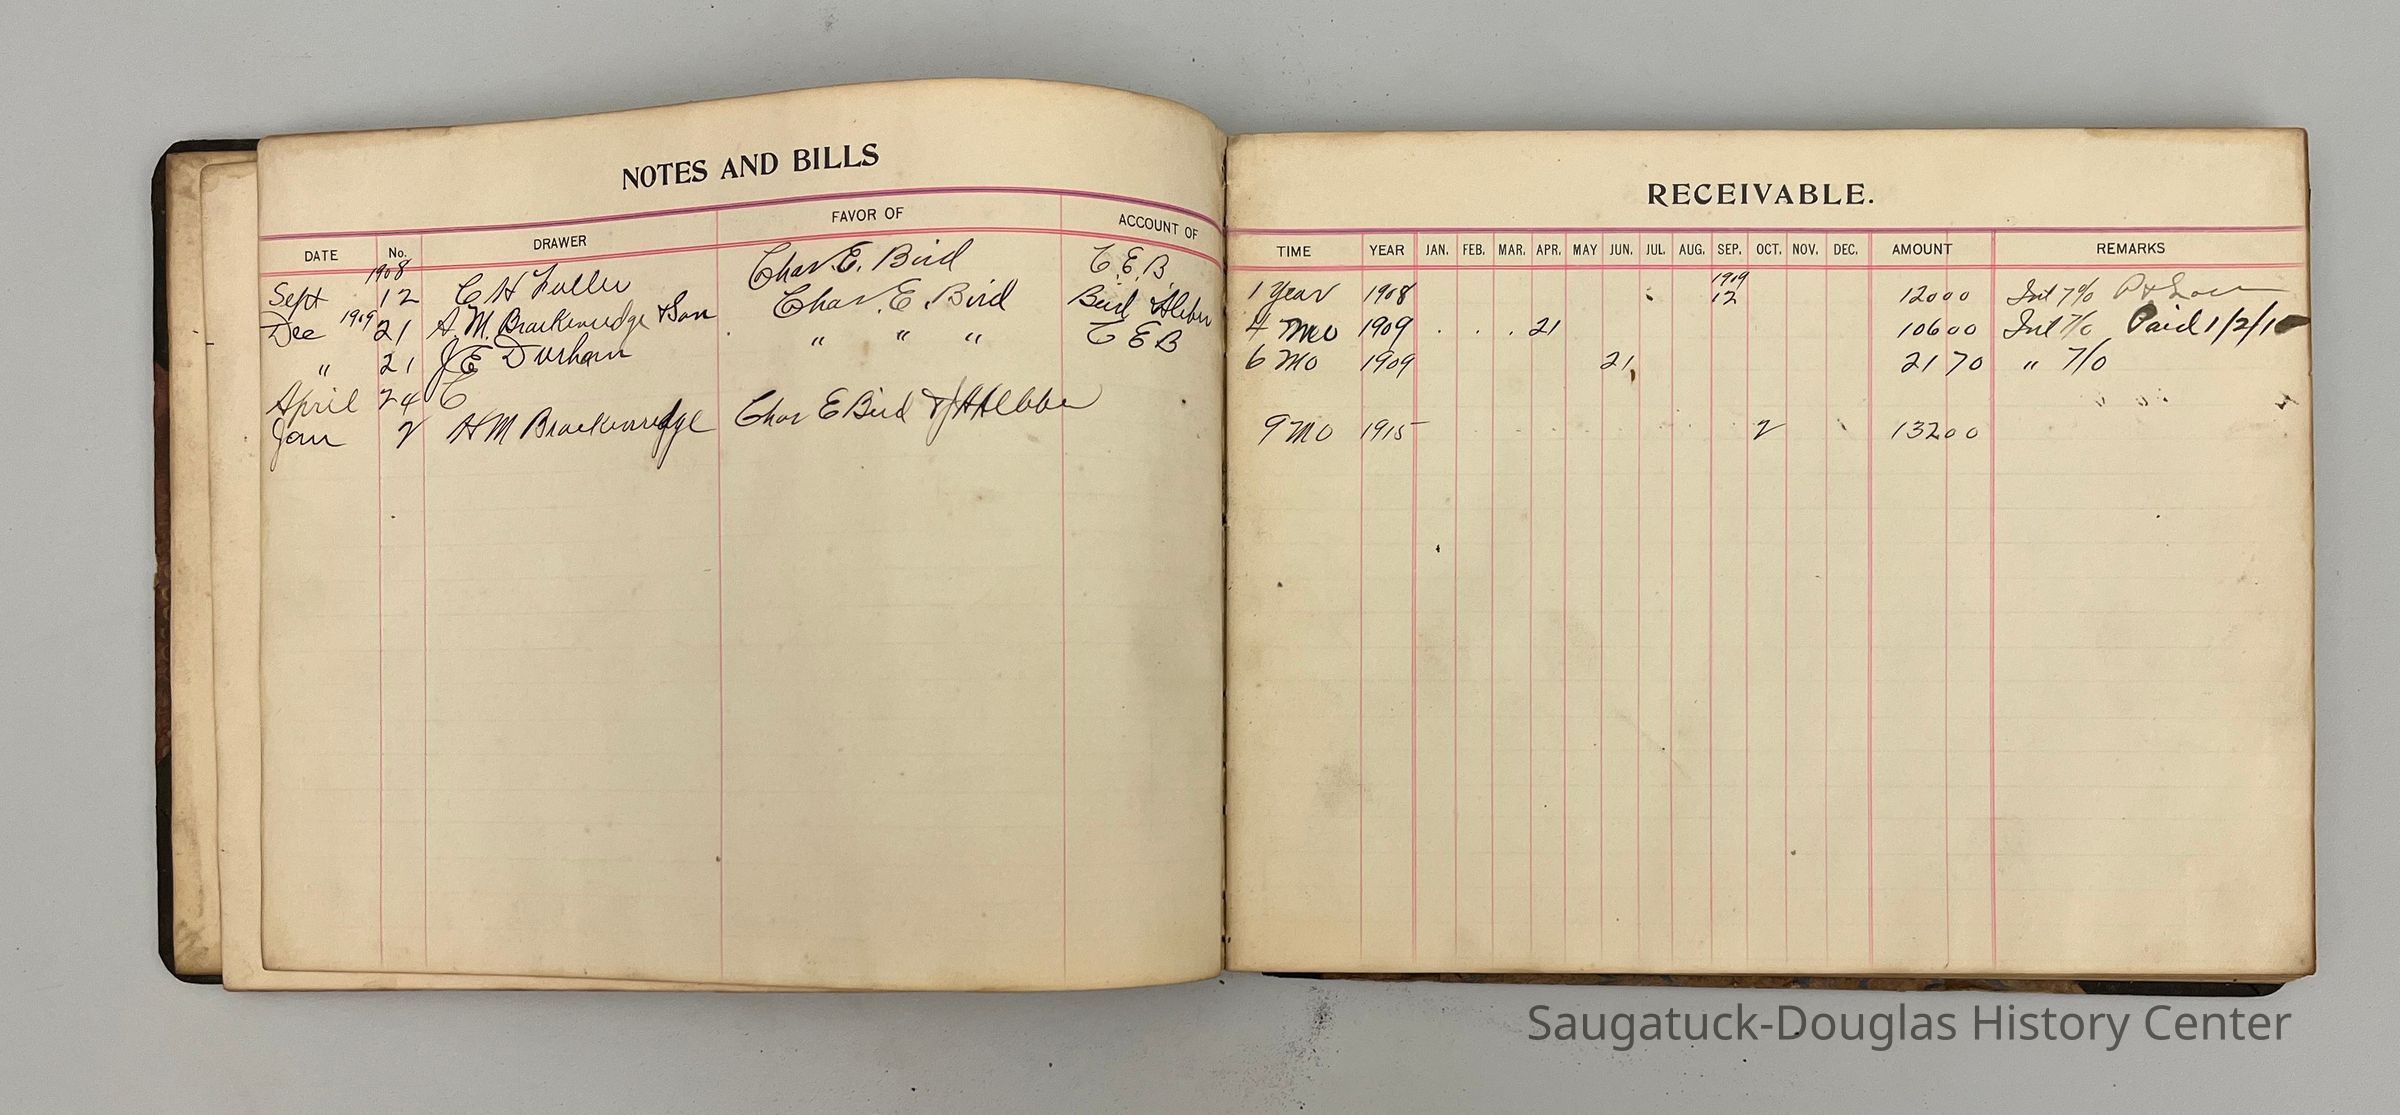 NOTES AND BILLS
DATE No. DRAWER FAVOR OF ACCOUNT OF
1908
Sept 12 C H Fuller Chas. E. Bird C. E. B.
Dec 1909 21 A. M. Brackenredge & Son Chas. E. Bird Bird
" 21 J E Durham " " " C E B
April 24 C
Jan 2 H M Brackenredge Chas E Bird &
RECEIVABLE.
TIME YEAR JAN. FEB. MAR. APR. MAY JUN. JUL. AUG. SEP. OCT. NOV. DEC. AMOUNT REMARKS
1 Year 1908 1909 12 120 00 Int 7%
4 Mo 1909 . . . 21 106 00 Int 7% Paid 1/2/10
6 Mo 1909 21 21 70 " 7/0
9 Mo 1915 2 132 00
Saugatuck-Douglas History Center